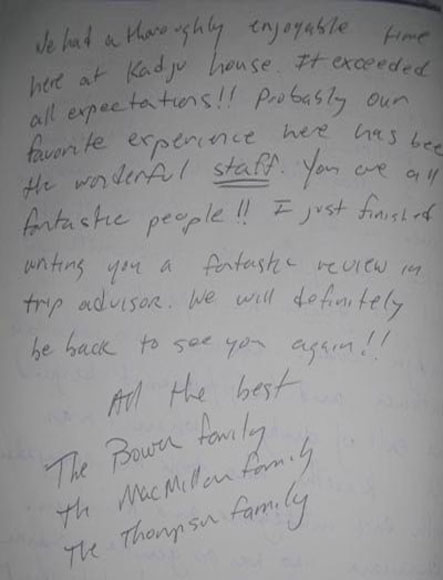 We had a thoroughly enjoyable time
here at Kadju house. It exceeded
all expectations!! Probably our
favorite experience here has bee
the wonderful staff. You are all
fantastic people!! I just finished
writing you a fantastic review in
trip advisor. We will definitely
be back to see you again!!
All the best
The Bowen family
The MacMillan family
The Thompson family